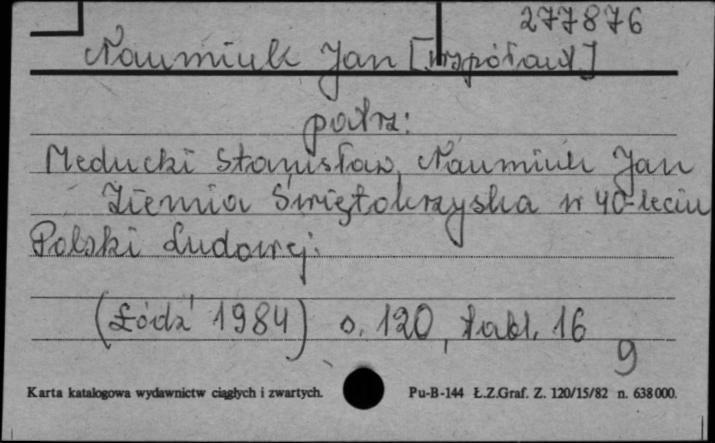 277876
Naumiuk Jan [współaut]
patrz:
Meducki Stanisław, Naumiuk Jan
Ziemia Świętokrzyska w 40-leciu
Polski Ludowej.
(Łódź 1984) s. 120, tabl. 16
9
Karta katalogowa wydawnictw ciągłych i zwartych. Pu-B-144 Ł.Z.Graf. Z. 120/15/82 n. 638000.